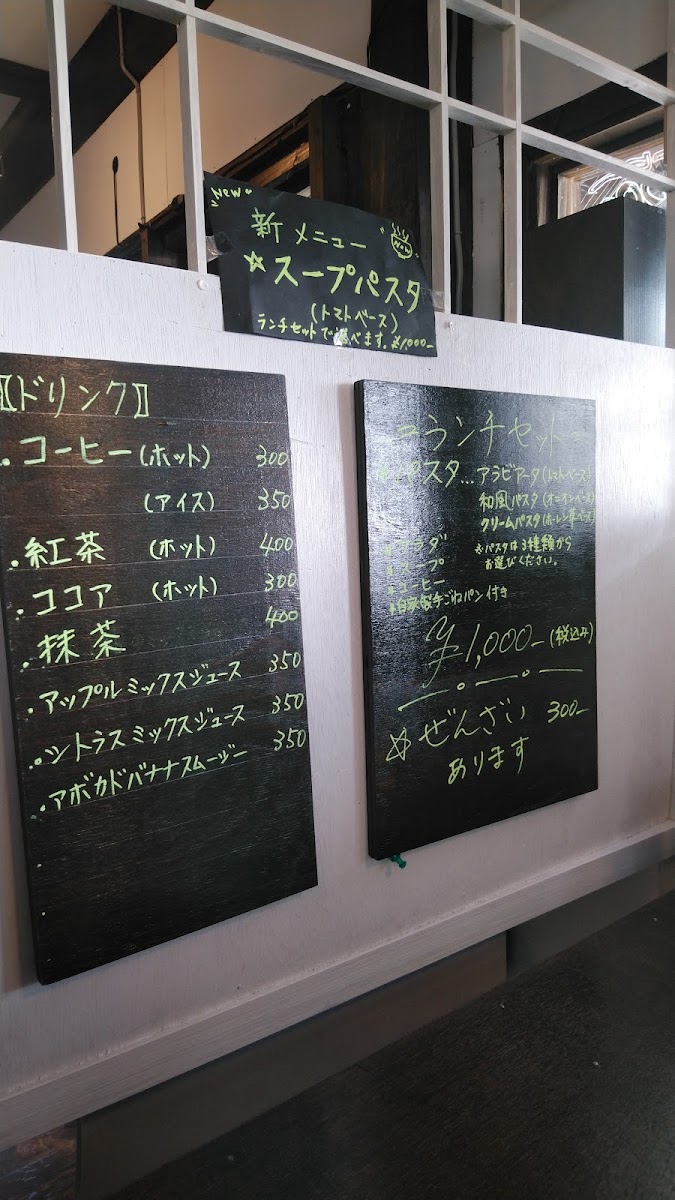 New
新メニュー
New
☆スープパスタ
(トマトベース)
ランチセットで選べます。¥1,000-
【ドリンク】
・コーヒー(ホット) 300
(アイス) 350
・紅茶 (ホット) 400
・ココア (ホット) 300
・抹茶 400
・アップルミックスジュース 350
・シトラスミックスジュース 350
・アボカドバナナスムージー 350
ランチセット
パスタ…アラビアータ(トマトベース)
和風パスタ(オニオンベース)
クリームパスタ(ホーレン草ベース)
サラダ ※パスタは3種類から
スープ お選びください。
コーヒー
自家製手ごねパン付き
¥1,000-(税込み)
☆ぜんざい 300-
あります